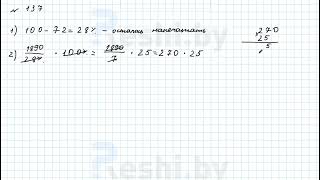 № 137
1) 100-72=28% - осталось напечатать
2) 1890/28% · 100% = 1890/7 · 25 = 270 · 25
270
25
5
Reshi.by